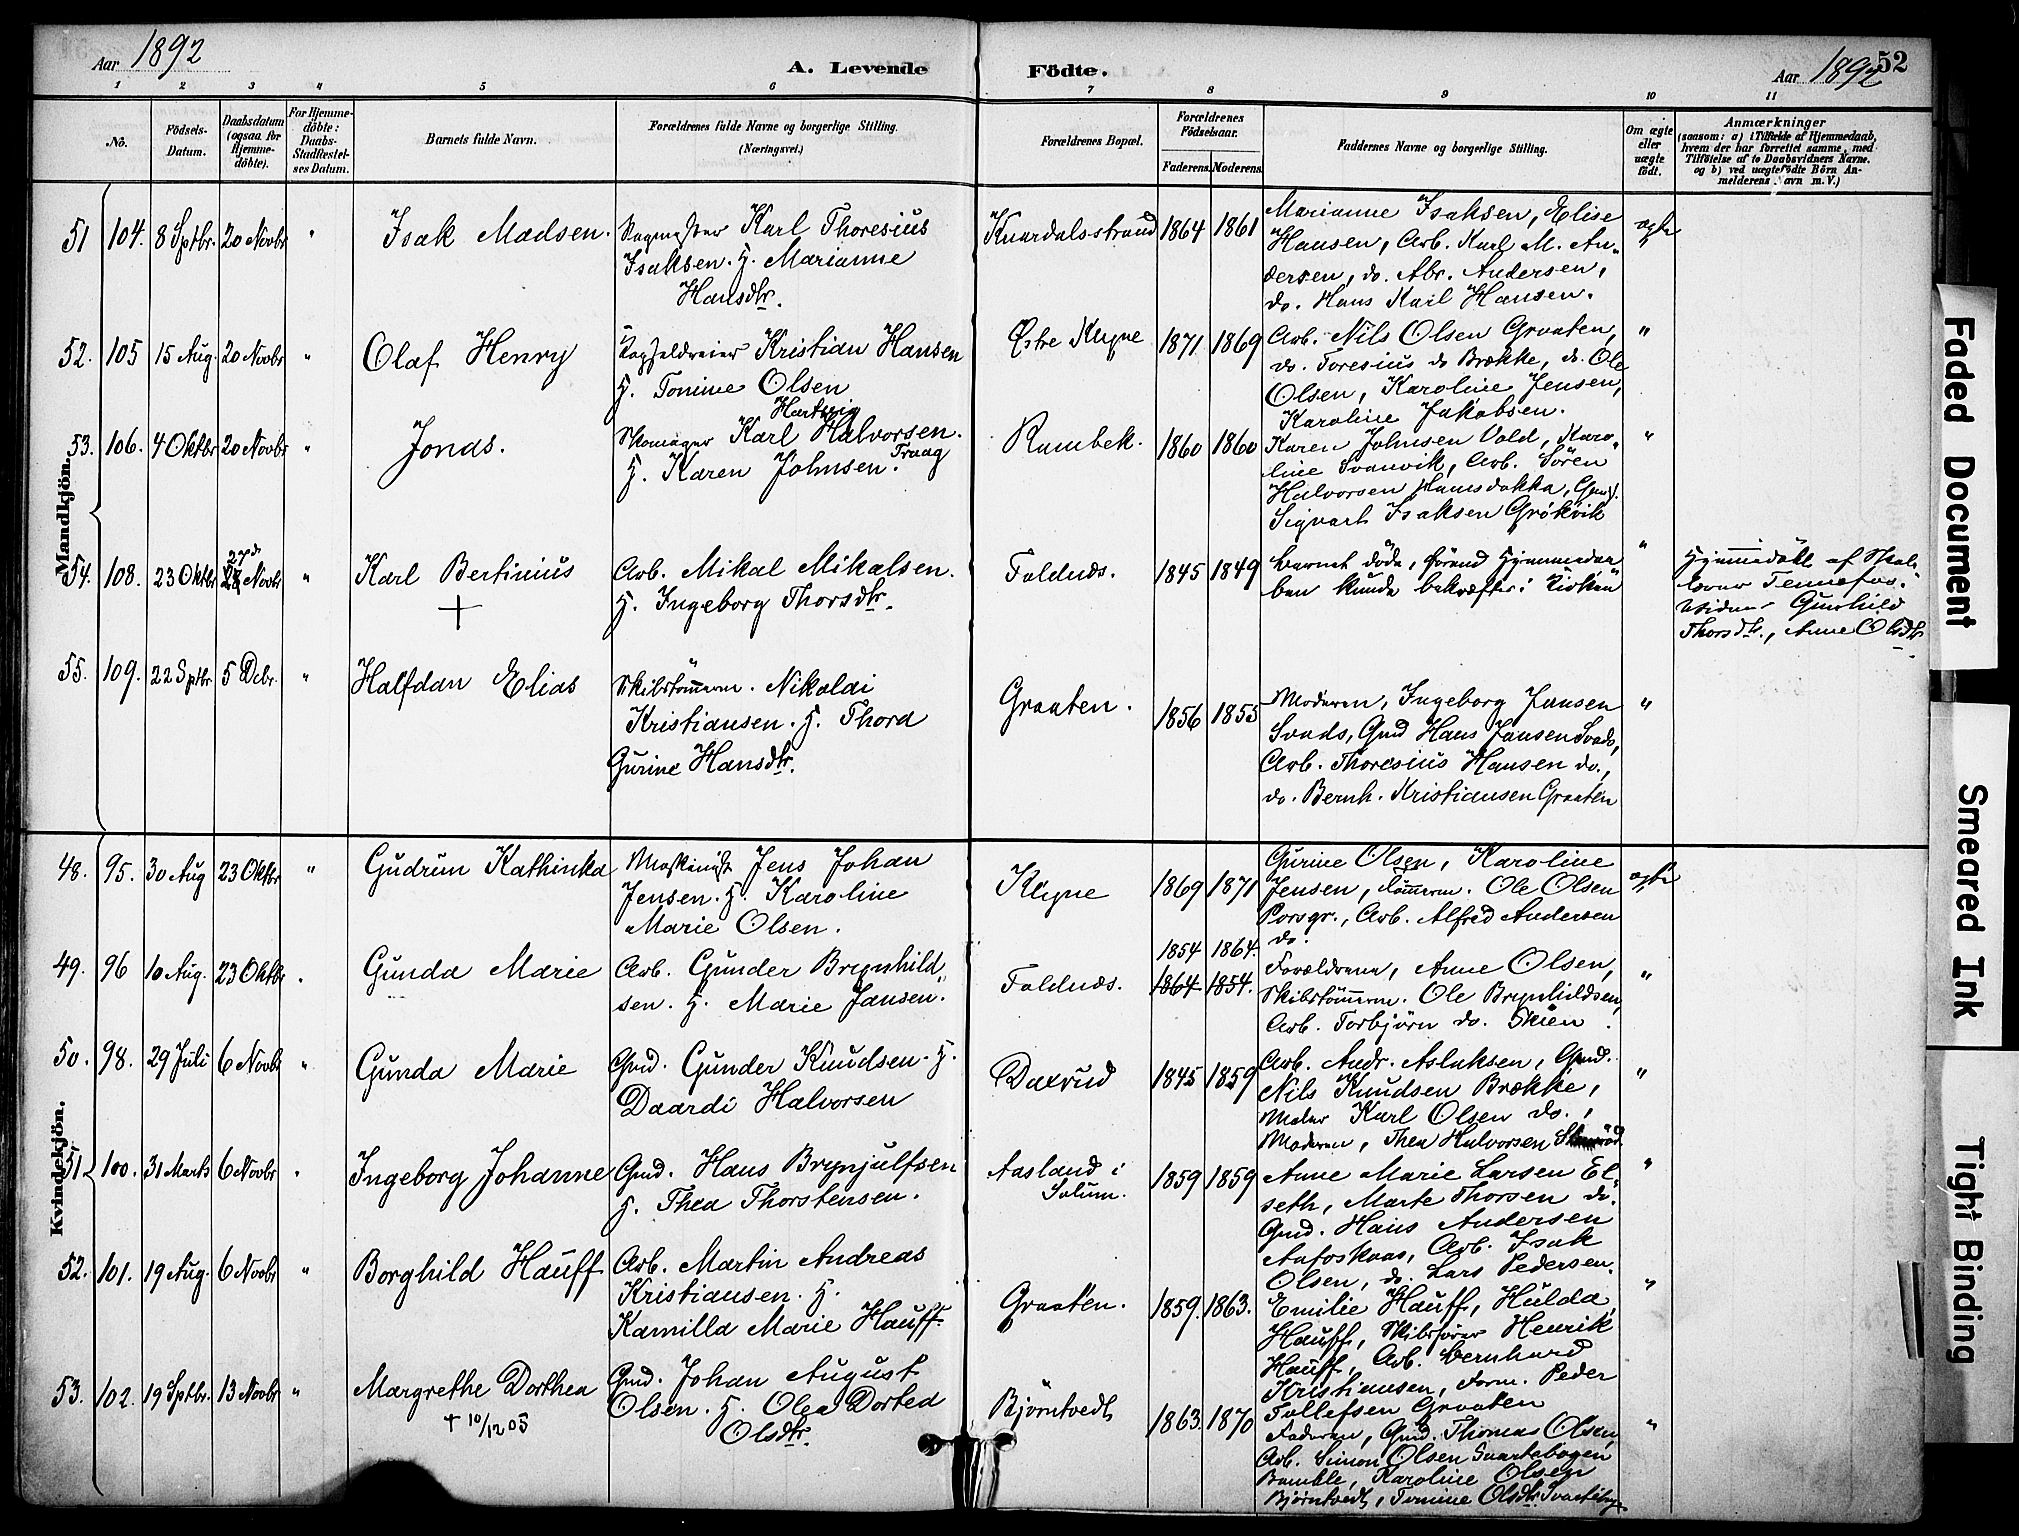 Aar 1892
A. Levende
Födte.
Aar 1892
52
1 2 3 4 5 6 7 8 9 10 11
No.
Födsels-Datum.
Daabsdatum (ogsaa for Hjemmedöbte).
For Hjemmedöbte: Daabs-Stadfæstelses Datum.
Barnets fulde Navn.
Forældrenes fulde Navne og borgerlige Stilling.
(Næringsvei.)
Forældrenes Bopæl.
Forældrenes Födselsaar.
Faderens. Moderens.
Faddernes Navne og borgerlige Stilling.
Om ægte eller uægte födt.
Anmærkninger
(saasom: a) i Tilfælde af Hjemmedaab, hvem der har forrettet samme, med Tilföielse af to Daabsvidners Navne. og b) ved uægtefödte Börn Anmelderens Navn m. V.)
Mandkjön.
51 104. 8 Sptbr. 20 Novbr " Isak Madsen. Karl Thoresius
Isaksen. H. Marianne
Hansdtr.
Knardalsstrand 1864 1861
Marianne Isaksen, Elise
Hansen, Arb. Karl M. An-
dersen, do. Abr. Andersen,
do. Hans Karl Hansen.
ægte
52. 105 15 Aug. 20 Novbr " Olaf Henry Kristian Hansen
H. Tonine Olsen
Östre Klyve 1871 1869
Arb. Nils Olsen Graaten,
do. Toresius do Brække, do. Ole
Olsen, Karoline Jensen,
Karoline Jakobsen.
"
53. 106. 4 Oktbr 20 Novbr " Jonas. Skomager Karl Hartvig Halvorsen.
H. Karen Johnsen. Traag
Rambek. 1860 1860
Karen Johnsen Vold, Karo-
line Svanvik, Arb. Sören
Halvorsen Hansdokka, Gmd.
Sigvart Isaksen Grökvik
"
54. 108. 23 Oktbr 27de Novbr " Karl Bertinius
+
Arb. Mikal Mikalsen.
H. Ingeborg Thorsdtr.
Foldnæs. 1845 1849
Barnet döde, förend Hjemmedaa-
ben kunde bekræftes i Kirken
"
Hjemmedöbt af Skole-
lærer Tennefos.
Vidner Gunhild
Thorsdtr., Anne Olsdtr.
55. 109. 22 Sptbr 5 Dcbr. " Halfdan Elias Skibstömmerm. Nikolai
Kristiansen. H. Thora
Gurine Hansdtr.
Graaten. 1856 1855
Moderen, Ingeborg Jansen
Svads, Gmd Hans Jansen Svads,
Arb. Thoresius Hansen do.,
do. Bernh. Kristiansen Graaten
"
Kvindekjön.
48. 95. 30 Aug 23 Oktbr " Gudrun Kathinka Maskinist Jens Johan
Jensen. H. Karoline
Marie Olsen.
Klyve 1869 1871
Gurine Olsen, Karoline
Jensen, tömmerm. Ole Olsen
Porsgr., Arb. Alfred Andersen
do.
ægte
49. 96 10 Aug. 23 Oktbr " Gunda Marie Arb. Gunder Brynhild-
sen. H. Marie Jansen.
Foldnæs. 1854 1864.
1864 1854.
Forældrene, Anne Olsen,
Skibstömmerm. Ole Brynhildsen,
Arb. Torbjörn do. Skien.
"
50. 98. 29 Juli 6 Novbr " Gunda Marie Gmd. Gunder Knudsen. H.
Daardi Halvorsen
Daxrud 1845 1859
Arb. Andr. Aslaksen, Gmd.
Nils Knudsen Brække,
Maler Karl Olsen do.,
Moderen, Thea Halvorsen
"
51. 100. 31 Marts 6 Novbr " Ingeborg Johanne Gmd. Hans Brynjulfsen
H. Thea Thorstensen.
Aasland i
Solum. 1859 1859
Anne Marie Larsen El-
seth, Marte Thorsen do.
Gmd. Hans Andersen
Aafoskaas, Arb. Isak
Olsen, do. Lars Pedersen.
"
52. 101. 19 Aug. 6 Novbr " Borghild Hauff Arb. Martin Andreas
Kristiansen. H.
Kamilla Marie Hauff
Graaten. 1859. 1863.
Emilie Hauff, Hulda
Hauff, Skibsförer Henrik
Hauff, Arb. Bernhard
Kristiansen, Form. Peder
Tollefsen Graaten
"
53. 102. 19 Sptbr. 13 Novbr " Margrethe Dorthea
+ 10/12 05
Gmd. Johan August
Olsen. H. Olea Dortea
Olsdtr.
Björntvedt 1863. 1870
Faderen, Gmd. Thomas Olsen,
Arb. Simon Olsen Svartebogen
Bamble, Karoline Olsen
Björntvedt, Tomine Olsdtr.
"
Faded Document
Smeared Ink
Tight Binding